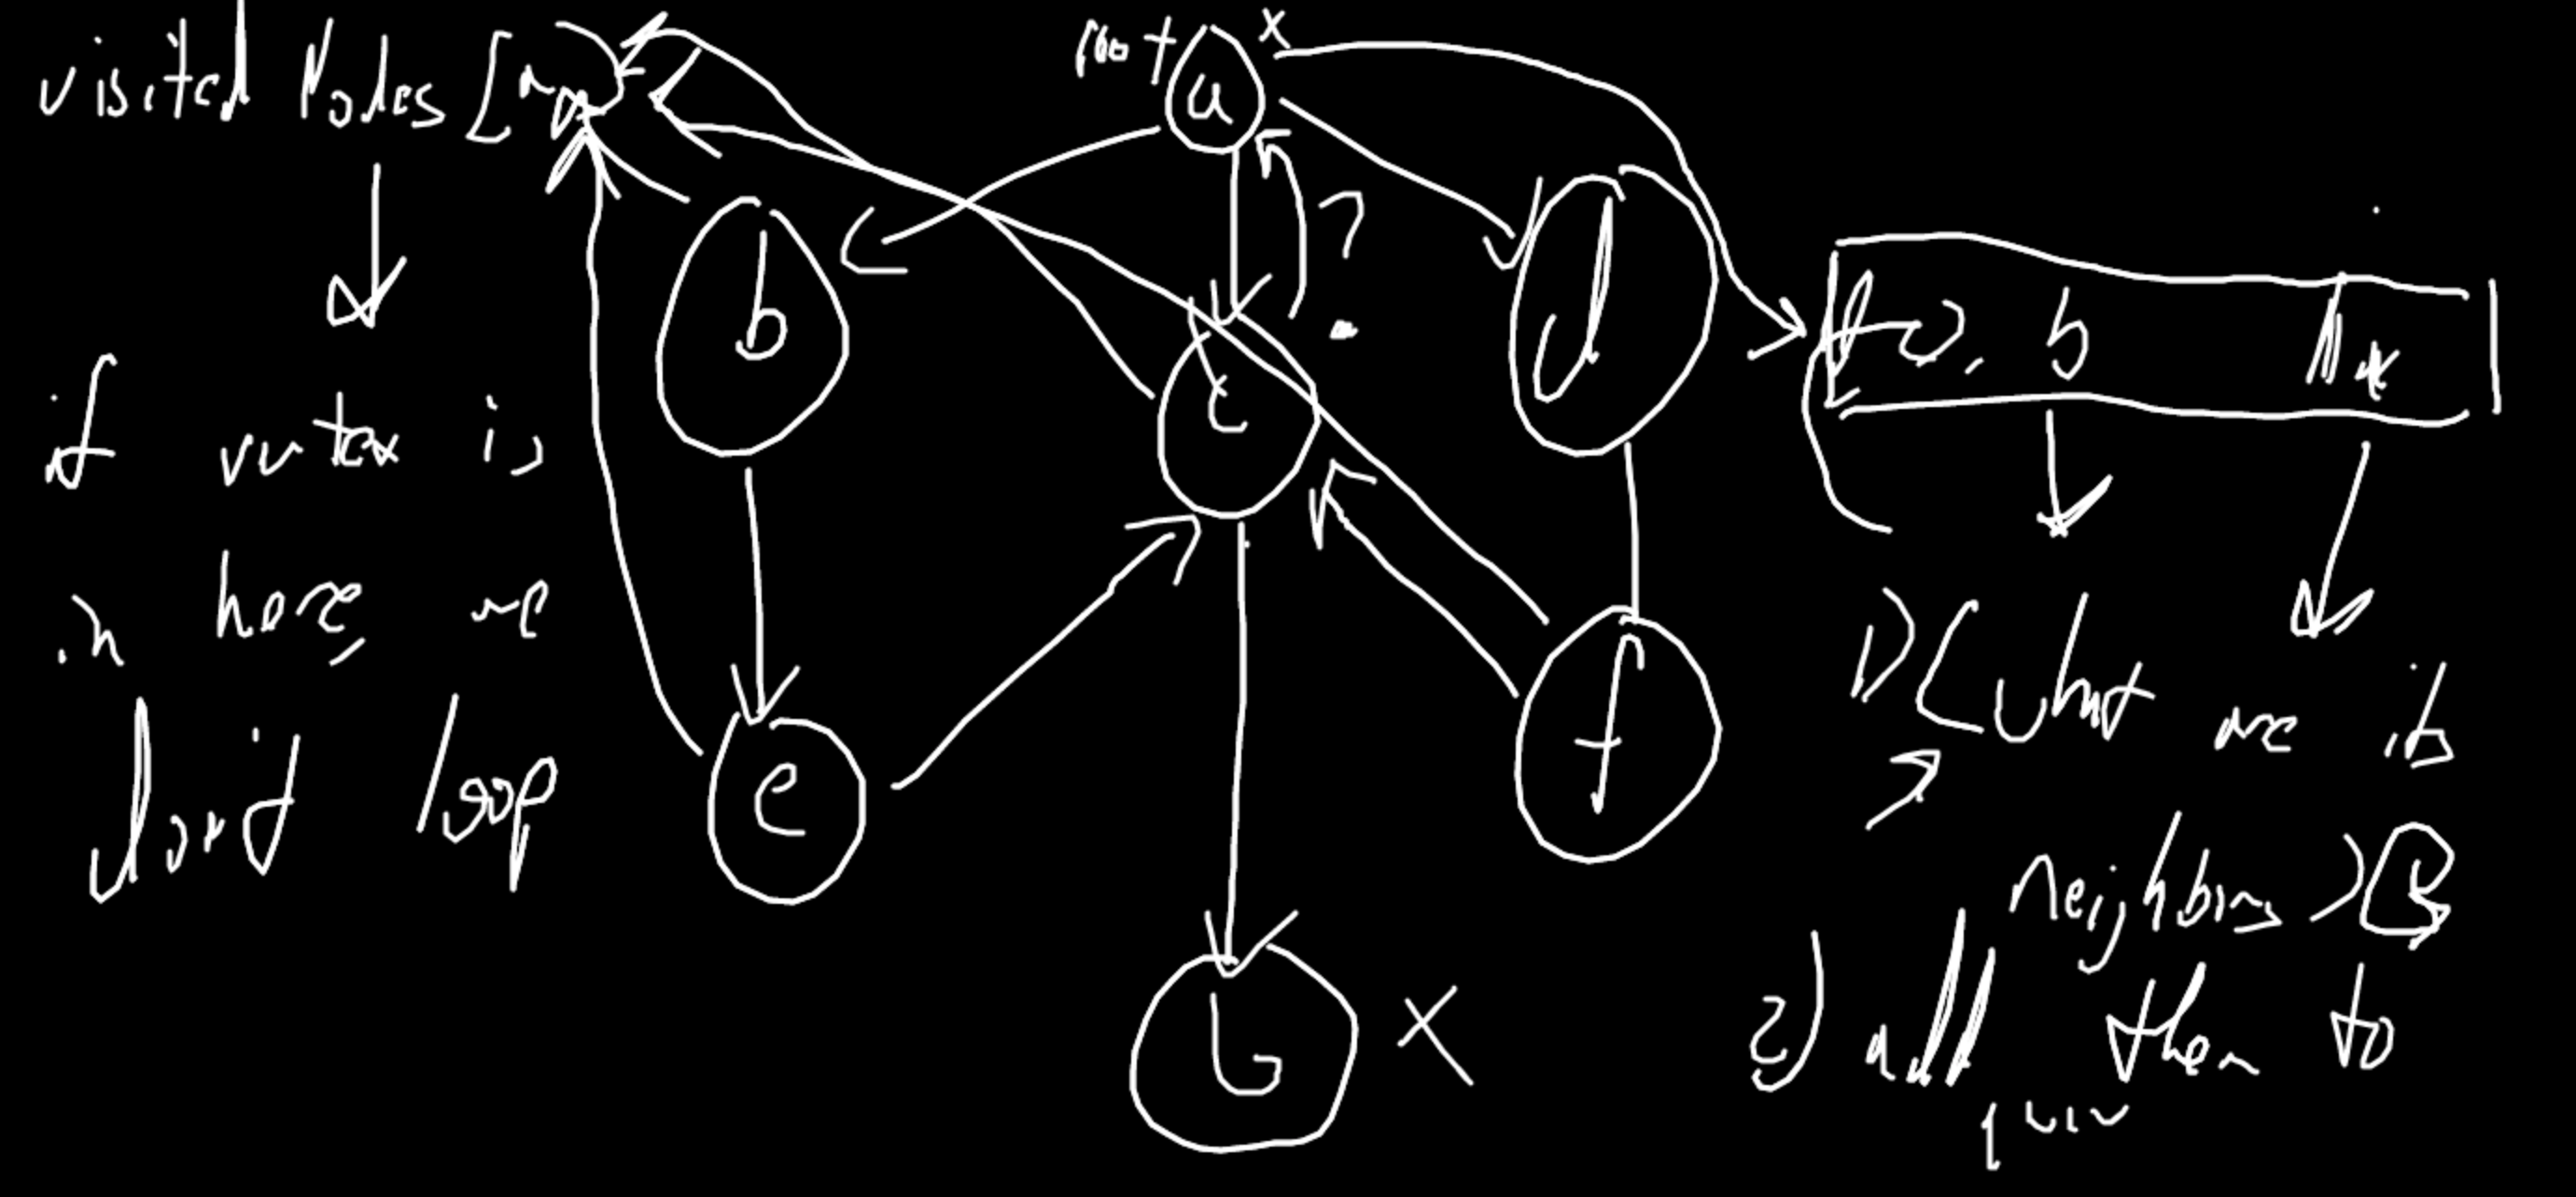 visited Nodes [
if vertex is
in here, we
avoid loop
root
a
x
b
c
?
d
e
f
G
X
b
1) (what are its
neighbors)
2) add them to